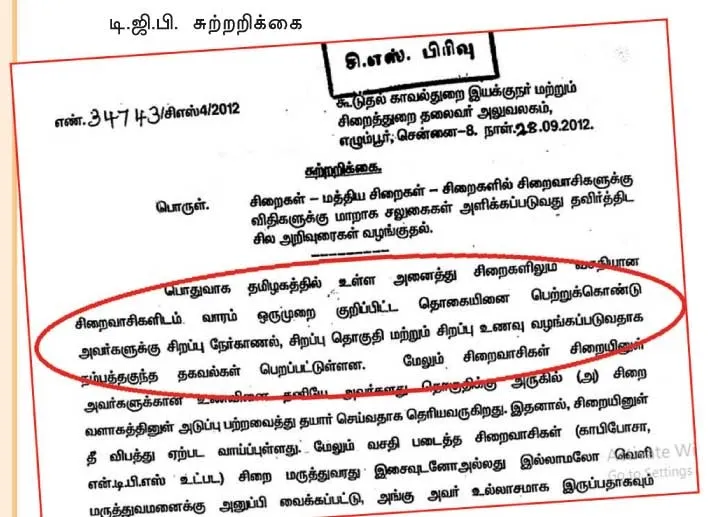 டி.ஜி.பி. சுற்றறிக்கை
சி.எஸ். பிரிவு
எண்.34743/சிஎஸ்4/2012
கூடுதல் காவல்துறை இயக்குநர் மற்றும்
சிறைத்துறை தலைவர் அலுவலகம்,
எழும்பூர், சென்னை-8. நாள்.28.09.2012.
சுற்றறிக்கை.
பொருள். சிறைகள் – மத்திய சிறைகள் – சிறைகளில் சிறைவாசிகளுக்கு
விதிகளுக்கு மாறாக சலுகைகள் அளிக்கப்படுவது தவிர்த்திட
சில அறிவுரைகள் வழங்குதல்.
பொதுவாக தமிழகத்தில் உள்ள அனைத்து சிறைகளிலும் வசதியான
சிறைவாசிகளிடம் வாரம் ஒருமுறை குறிப்பிட்ட தொகையினை பெற்றுக்கொண்டு
அவர்களுக்கு சிறப்பு நேர்காணல், சிறப்பு தொகுதி மற்றும் சிறப்பு உணவு வழங்கப்படுவதாக
நம்பத்தகுந்த தகவல்கள் பெறப்பட்டுள்ளன. மேலும் சிறைவாசிகள் சிறையினுள்
அவர்களுக்கான உணவினை தனியே அவர்களது தொகுதிக்கு அருகில் (அ) சிறை
வளாகத்தினுள் அடுப்பு பற்றவைத்து தயார் செய்வதாக தெரியவருகிறது. இதனால், சிறையினுள்
தீ விபத்து ஏற்பட வாய்ப்புள்ளது. மேலும் வசதி படைத்த சிறைவாசிகள் (காபிபோசா,
என்.டி.பி.எஸ் உட்பட) சிறை மருத்துவரது இசைவுடனோஅல்லது இல்லாமலோ வெளி
மருத்துவமனைக்கு அனுப்பி வைக்கப்பட்டு, அங்கு அவர் உல்லாசமாக இருப்பதாகவும்
Go to Settings